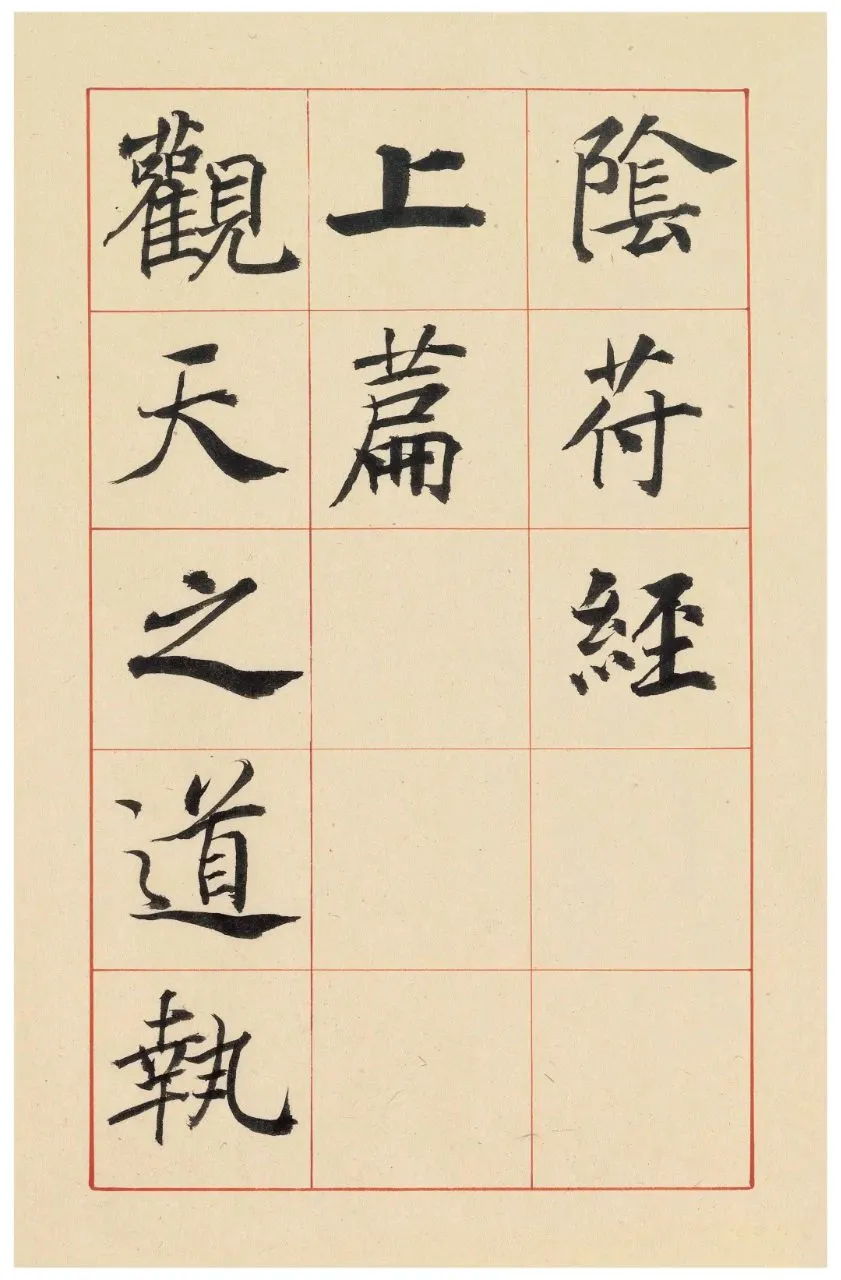 陰苻經
上篇
觀天之道執